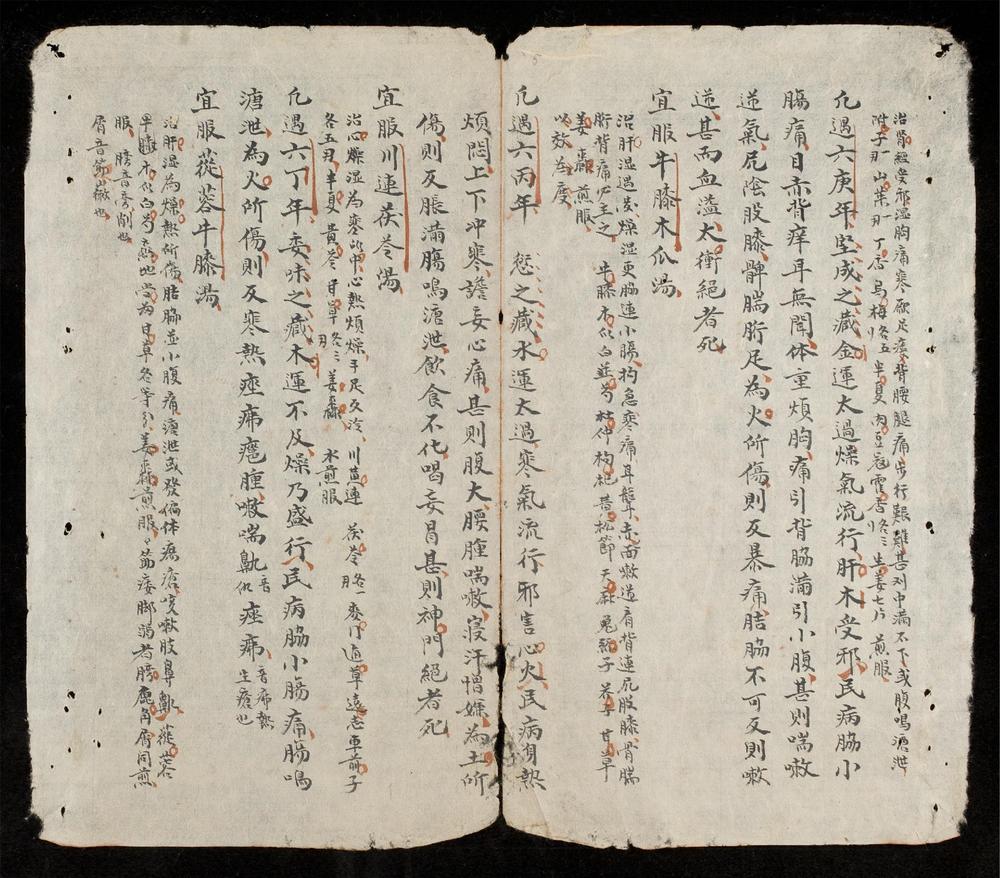 治腎經受邪湿胸痛寒厥足痿背腰腿痛步行艱難甚刈中滿不下或腹鳴溏泄
附子一刃山茱一刃丁香烏梅各五半夏肉豆蔻霍香各三生姜七片煎服
凡遇六庚年堅成之藏金運太過燥氣流行肝木受邪民病脇小
腸痛目赤背痒耳無聞体重煩胸痛引背脇滿引小腹甚則喘嗽
逆氣尻陰股膝髀腨䯒足為火所傷則反暴痛胠脇不可反則嗽
逆甚而血溢太衝絕者死
宜服牛膝木瓜湯
治肝湿遇发燥湿更脇連小腸拘急寒痛耳聾赤面嗽逆肩背連尻股膝骨腨
䯒背痛尸主之 牛膝木瓜白芍杜仲枸杞黃松節天麻兔絲子甘草
姜棗煎服
以效為度
凡遇六丙年 愆之藏水運太過寒氣流行邪害心火民病身熱
煩悶上下冲寒譫妄心痛甚則腹大腰腫喘嗽寢汗憎嫌為土所
傷則反脹滿腸鳴溏泄飲食不化喝妄冒甚則神門絕者死
宜服川連茯苓湯
治心燥湿為寒冷中心熱煩燥手足反冷川黃連茯苓各一麥門通草遠志車前子
各五刃半夏黃苓甘草各三刃姜棗水煎服
凡遇六丁年委味之藏木運不及燥乃盛行民病脇小腸痛腸鳴
溏泄為火所傷則反寒熱痤疿癍腫嗽喘鼽音仇痤疿音沸熱生瘡也
宜服蓯蓉牛膝湯
治肝湿為燥熱所傷胠脇並小腹痛溏泄或發偏体瘍瘡咳嗽肢鼻鼽蓯蓉
牛膝木瓜白芍熱地当為甘草各等分姜棗煎服々筋痿脚弱者膀鹿角屑同煎
服 膀音旁削也
屑音節𡭕也